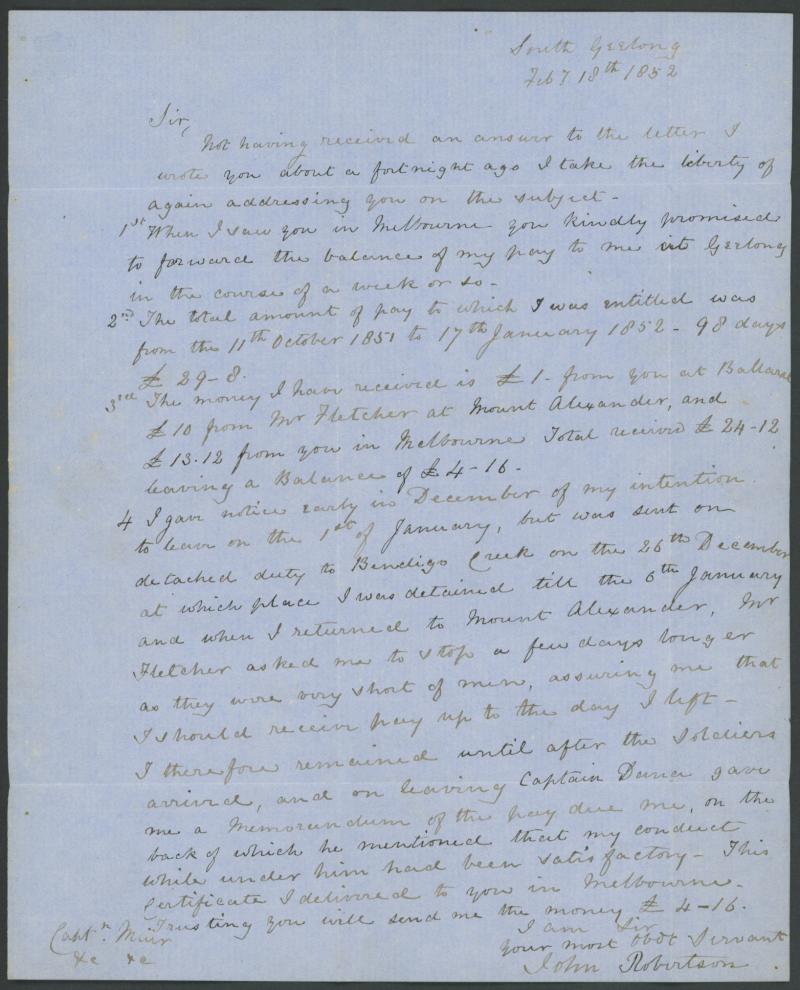 South Geelong
Feby 18th 1852
Sir,
Not having received an answer to the letter I
wrote you about a fortnight ago I take the liberty of
again addressing you on the subject -
1st When I saw you in Melbourne you kindly promised
to forward the balance of my pay to me at Geelong
in the course of a week or so -
2nd The total amount of pay to which I was entitled was
from the 11th October 1851 to 17th January 1852 - 98 days
£ 29-8.
3rd The money I have received is £1- from you at Ballarat
£10 from Mr Fletcher at Mount Alexander, and
£13.12 from you in Melbourne Total received £24-12
leaving a Balance of £4-16 -
4 I gave notice early in December of my intention
to leave on the 1st of January, but was sent on
detached duty to Bendigo Creek on the 26th December
at which place I was detained till the 6th January
and when I returned to Mount Alexander, Mr
Fletcher asked me to stop a few days longer
as they were very short of men, assuring me that
I should receive pay up to the day I left -
I therefore remained until after the Soldiers
arrived, and on leaving Captain Dana gave
me a Memorandum of the pay due me, on the
back of which he mentioned that my conduct
while under him had been satisfactory - This
Certificate I delivered to you in Melbourne -
Trusting you will send me the money £4-16.
I am Sir
your most obdt Servant
John Robertson
Captn. Muir
&c &c